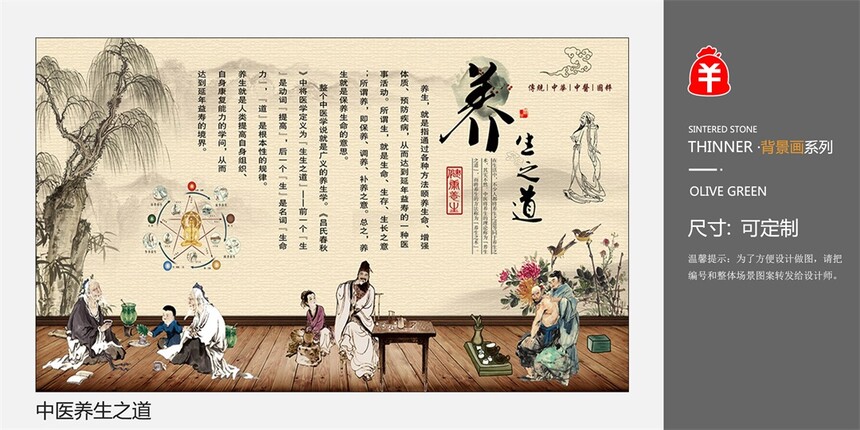 养
生之道
傳統|中華|中醫|國粹
健康養生
养生，就是指通过各种方法颐养生命、增强
体质、预防疾病，从而达到延年益寿的一种医
事活动。所谓生，就是生命、生存、生长之意
；所谓养，即保养、调养、补养之意。总之，养
生就是保养生命的意思。
整个中医学说就是广义的养生学。《吕氏春秋
》中将医学定义为『生生之道』——前一个『生
』是动词『提高』，后一个『生』是名词『生命
力』，『道』是根本性的规律。
养生就是人类提高自身组织、
自身康复能力的学问，从而
达到延年益寿的境界。
中医养生之道
羊
SINTERED STONE
THINNER ·背景画系列
OLIVE GREEN
尺寸: 可定制
温馨提示：为了方便设计做图，请把
编号和整体场景图案转发给设计师。